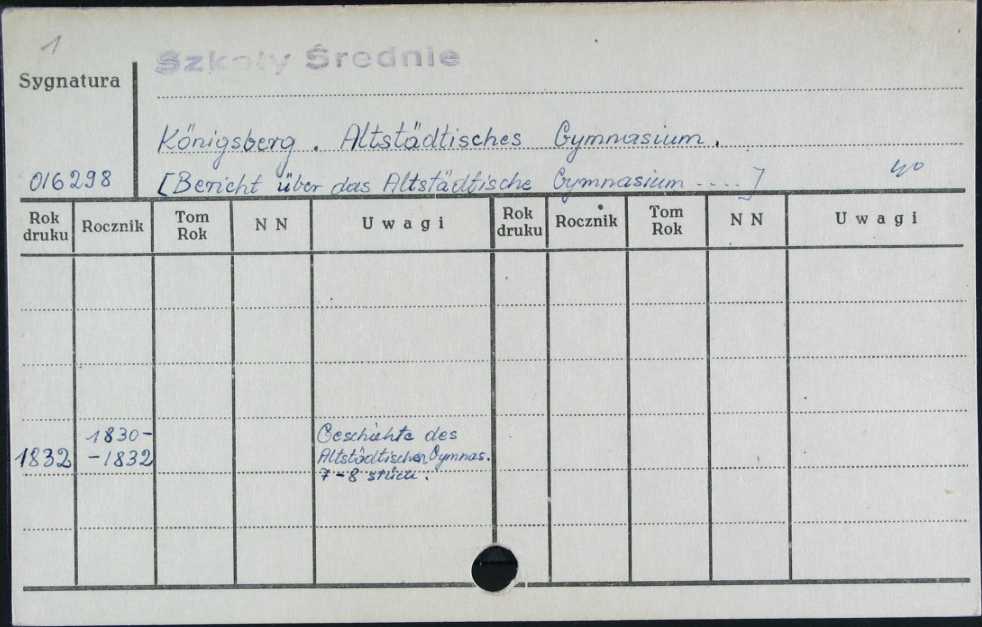 1
Szkoły Średnie
Sygnatura
Königsberg. Altstädtisches Gymnasium.
016298
[Bericht über das Altstädtische Gymnasium ....]
Rok druku
Rocznik
Tom Rok
N N
Uwagi
Rok druku
Rocznik
Tom Rok
N N
Uwagi
1832
1830-
-1832
Geschichte des
Altstädtischen Gymnas.
7-8